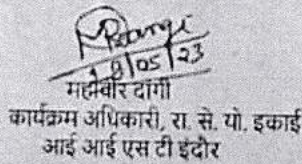 05/23
महावीर दांगी
कार्यक्रम अधिकारी, रा. से. यो. इकाई
आई आई एस टी इंदौर